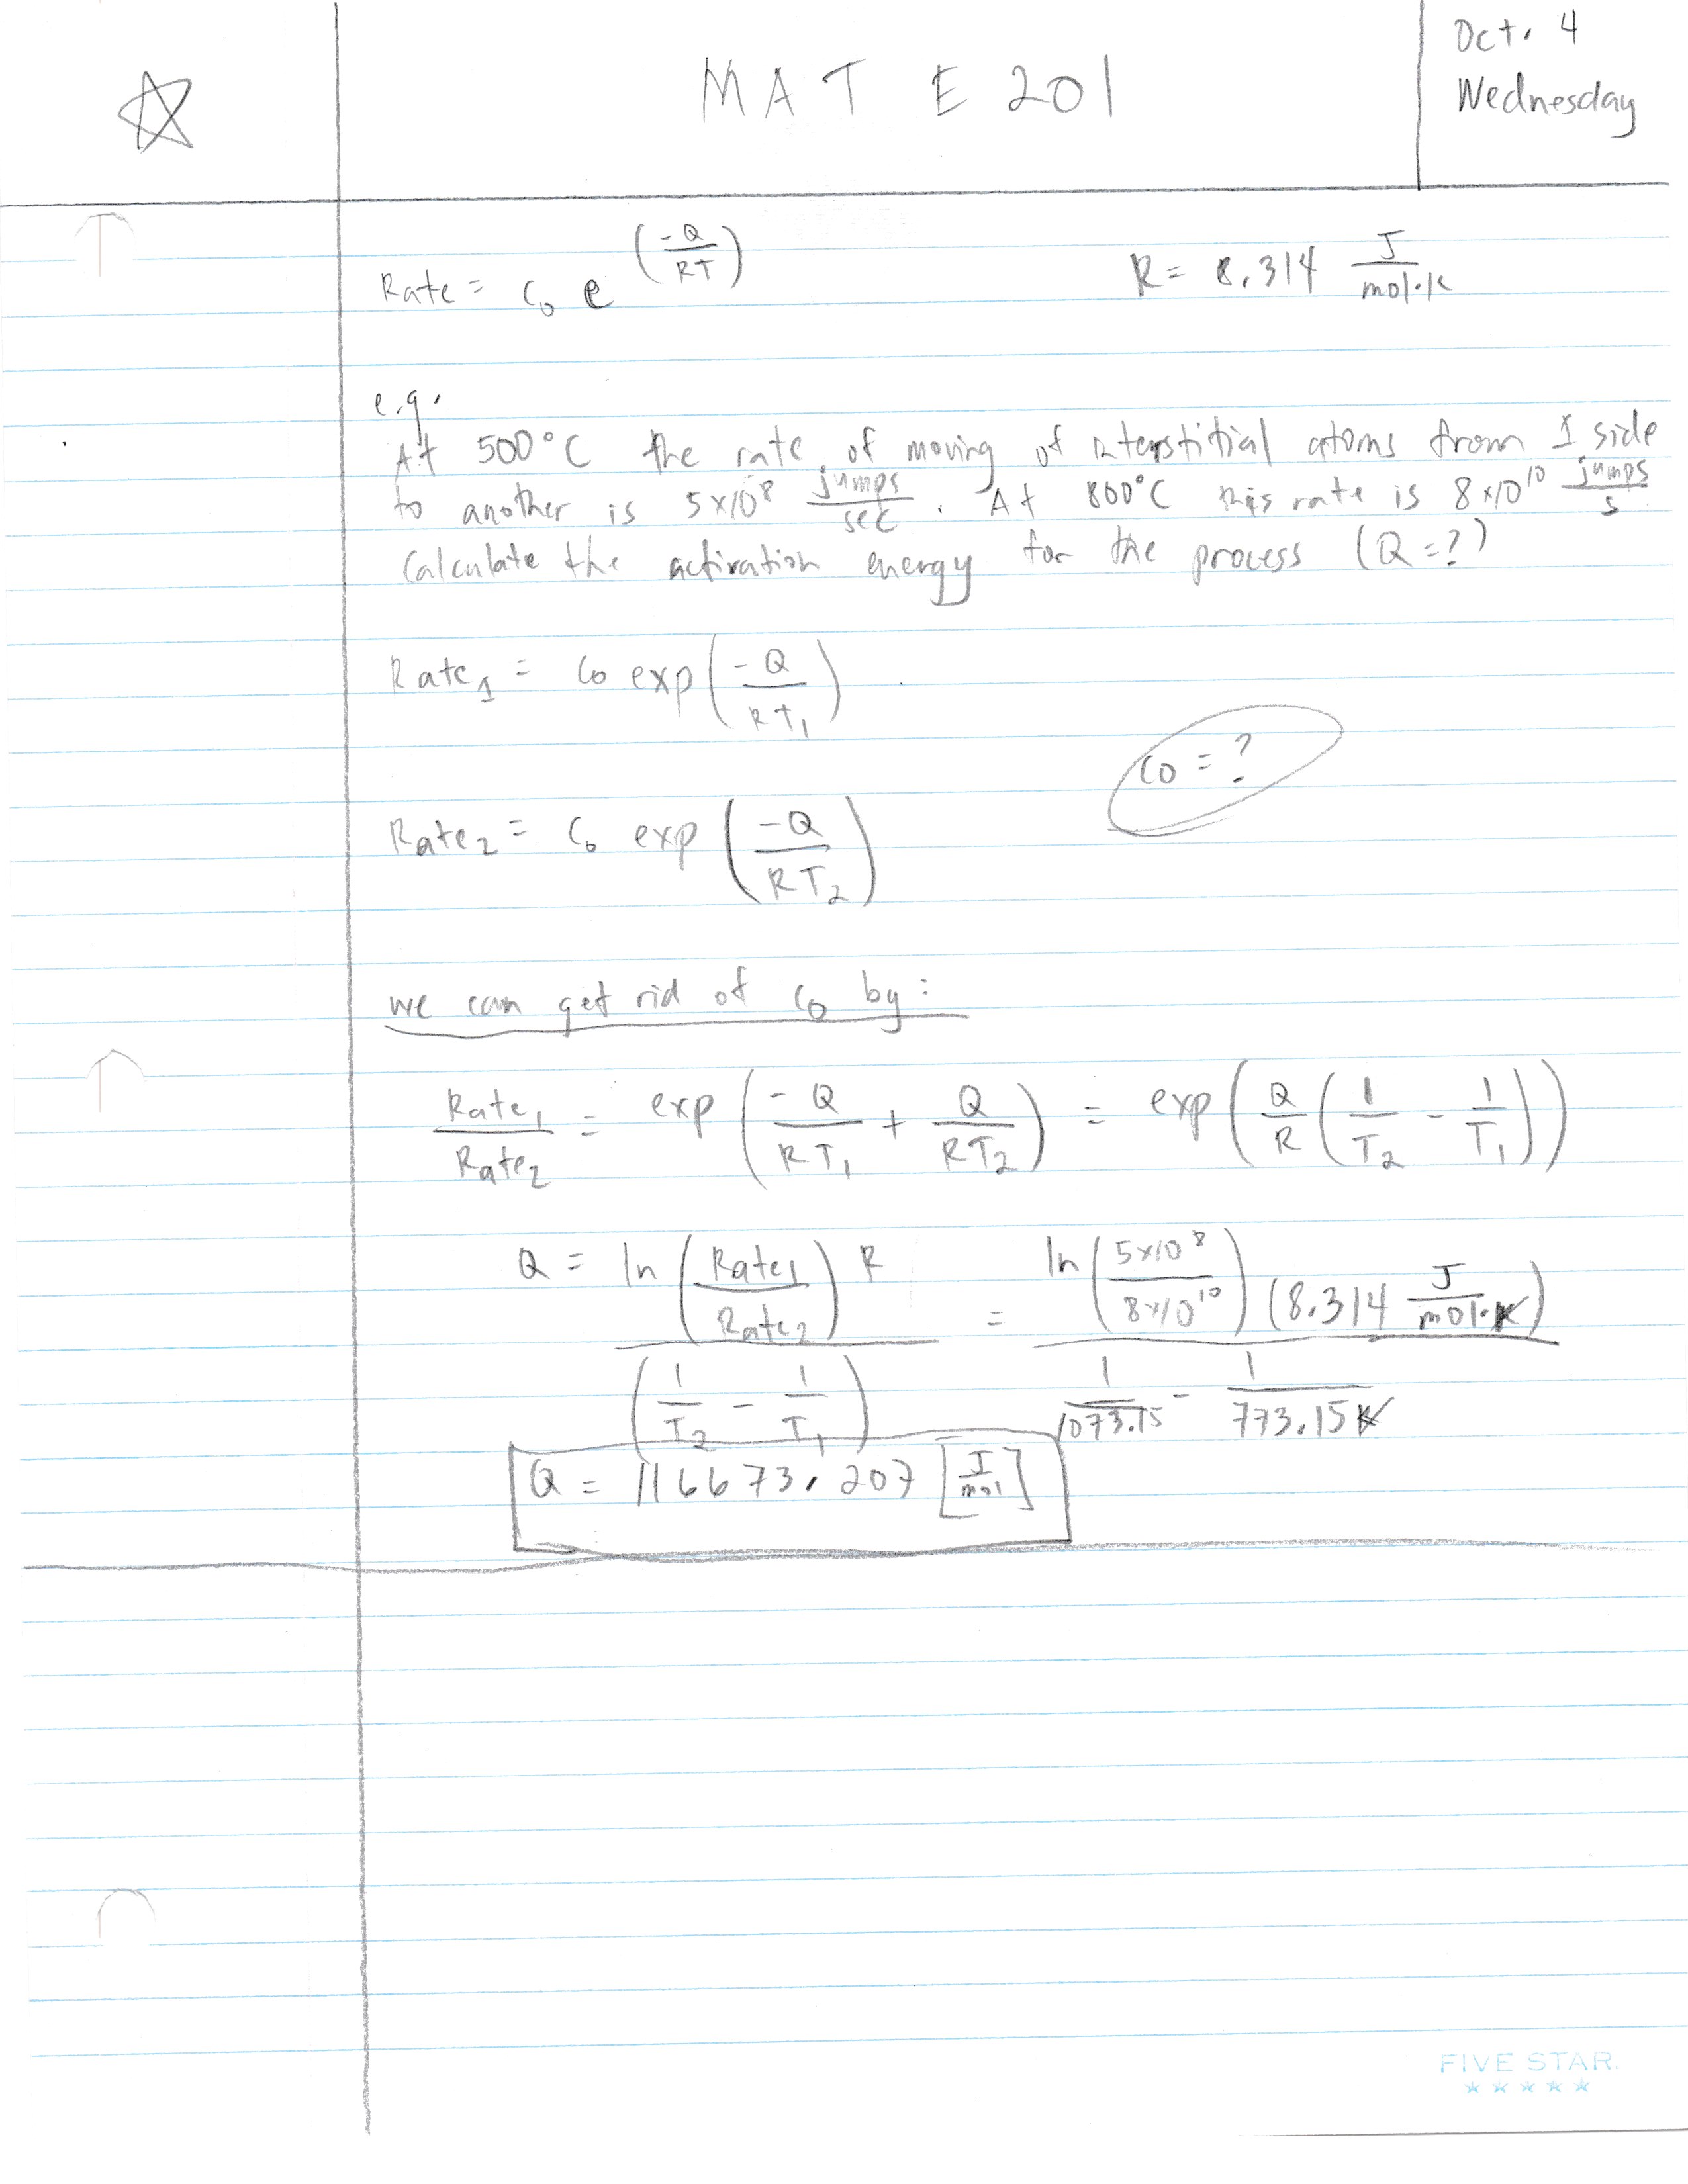 MAT E 201
Oct. 4
Wednesday
Rate = C₀ e^(-Q/RT)
R = 8.314 J/mol·K
e.g.
At 500°C the rate of moving of interstitial atoms from 1 side
to another is 5x10⁸ jumps/sec. At 800°C this rate is 8x10¹⁰ jumps/s
Calculate the activation energy for the process (Q=?)
Rate₁ = C₀ exp(-Q/RT₁)
C₀ = ?
Rate₂ = C₀ exp(-Q/RT₂)
we can get rid of C₀ by:
Rate₁/Rate₂ = exp(-Q/RT₁ + Q/RT₂) = exp(Q/R(1/T₂ - 1/T₁))
Q = ln(Rate₁/Rate₂) R / (1/T₂ - 1/T₁) = ln(5x10⁸/8x10¹⁰) (8.314 J/mol·K) / 1/1073.15 - 1/773.15K
Q = 116673.207 [J/mol]
FIVE STAR.